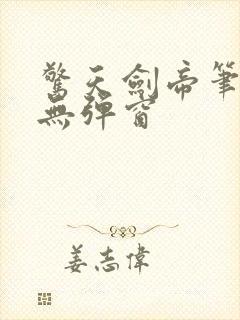 驚天劍帝筆
無彈窗
姜志偉